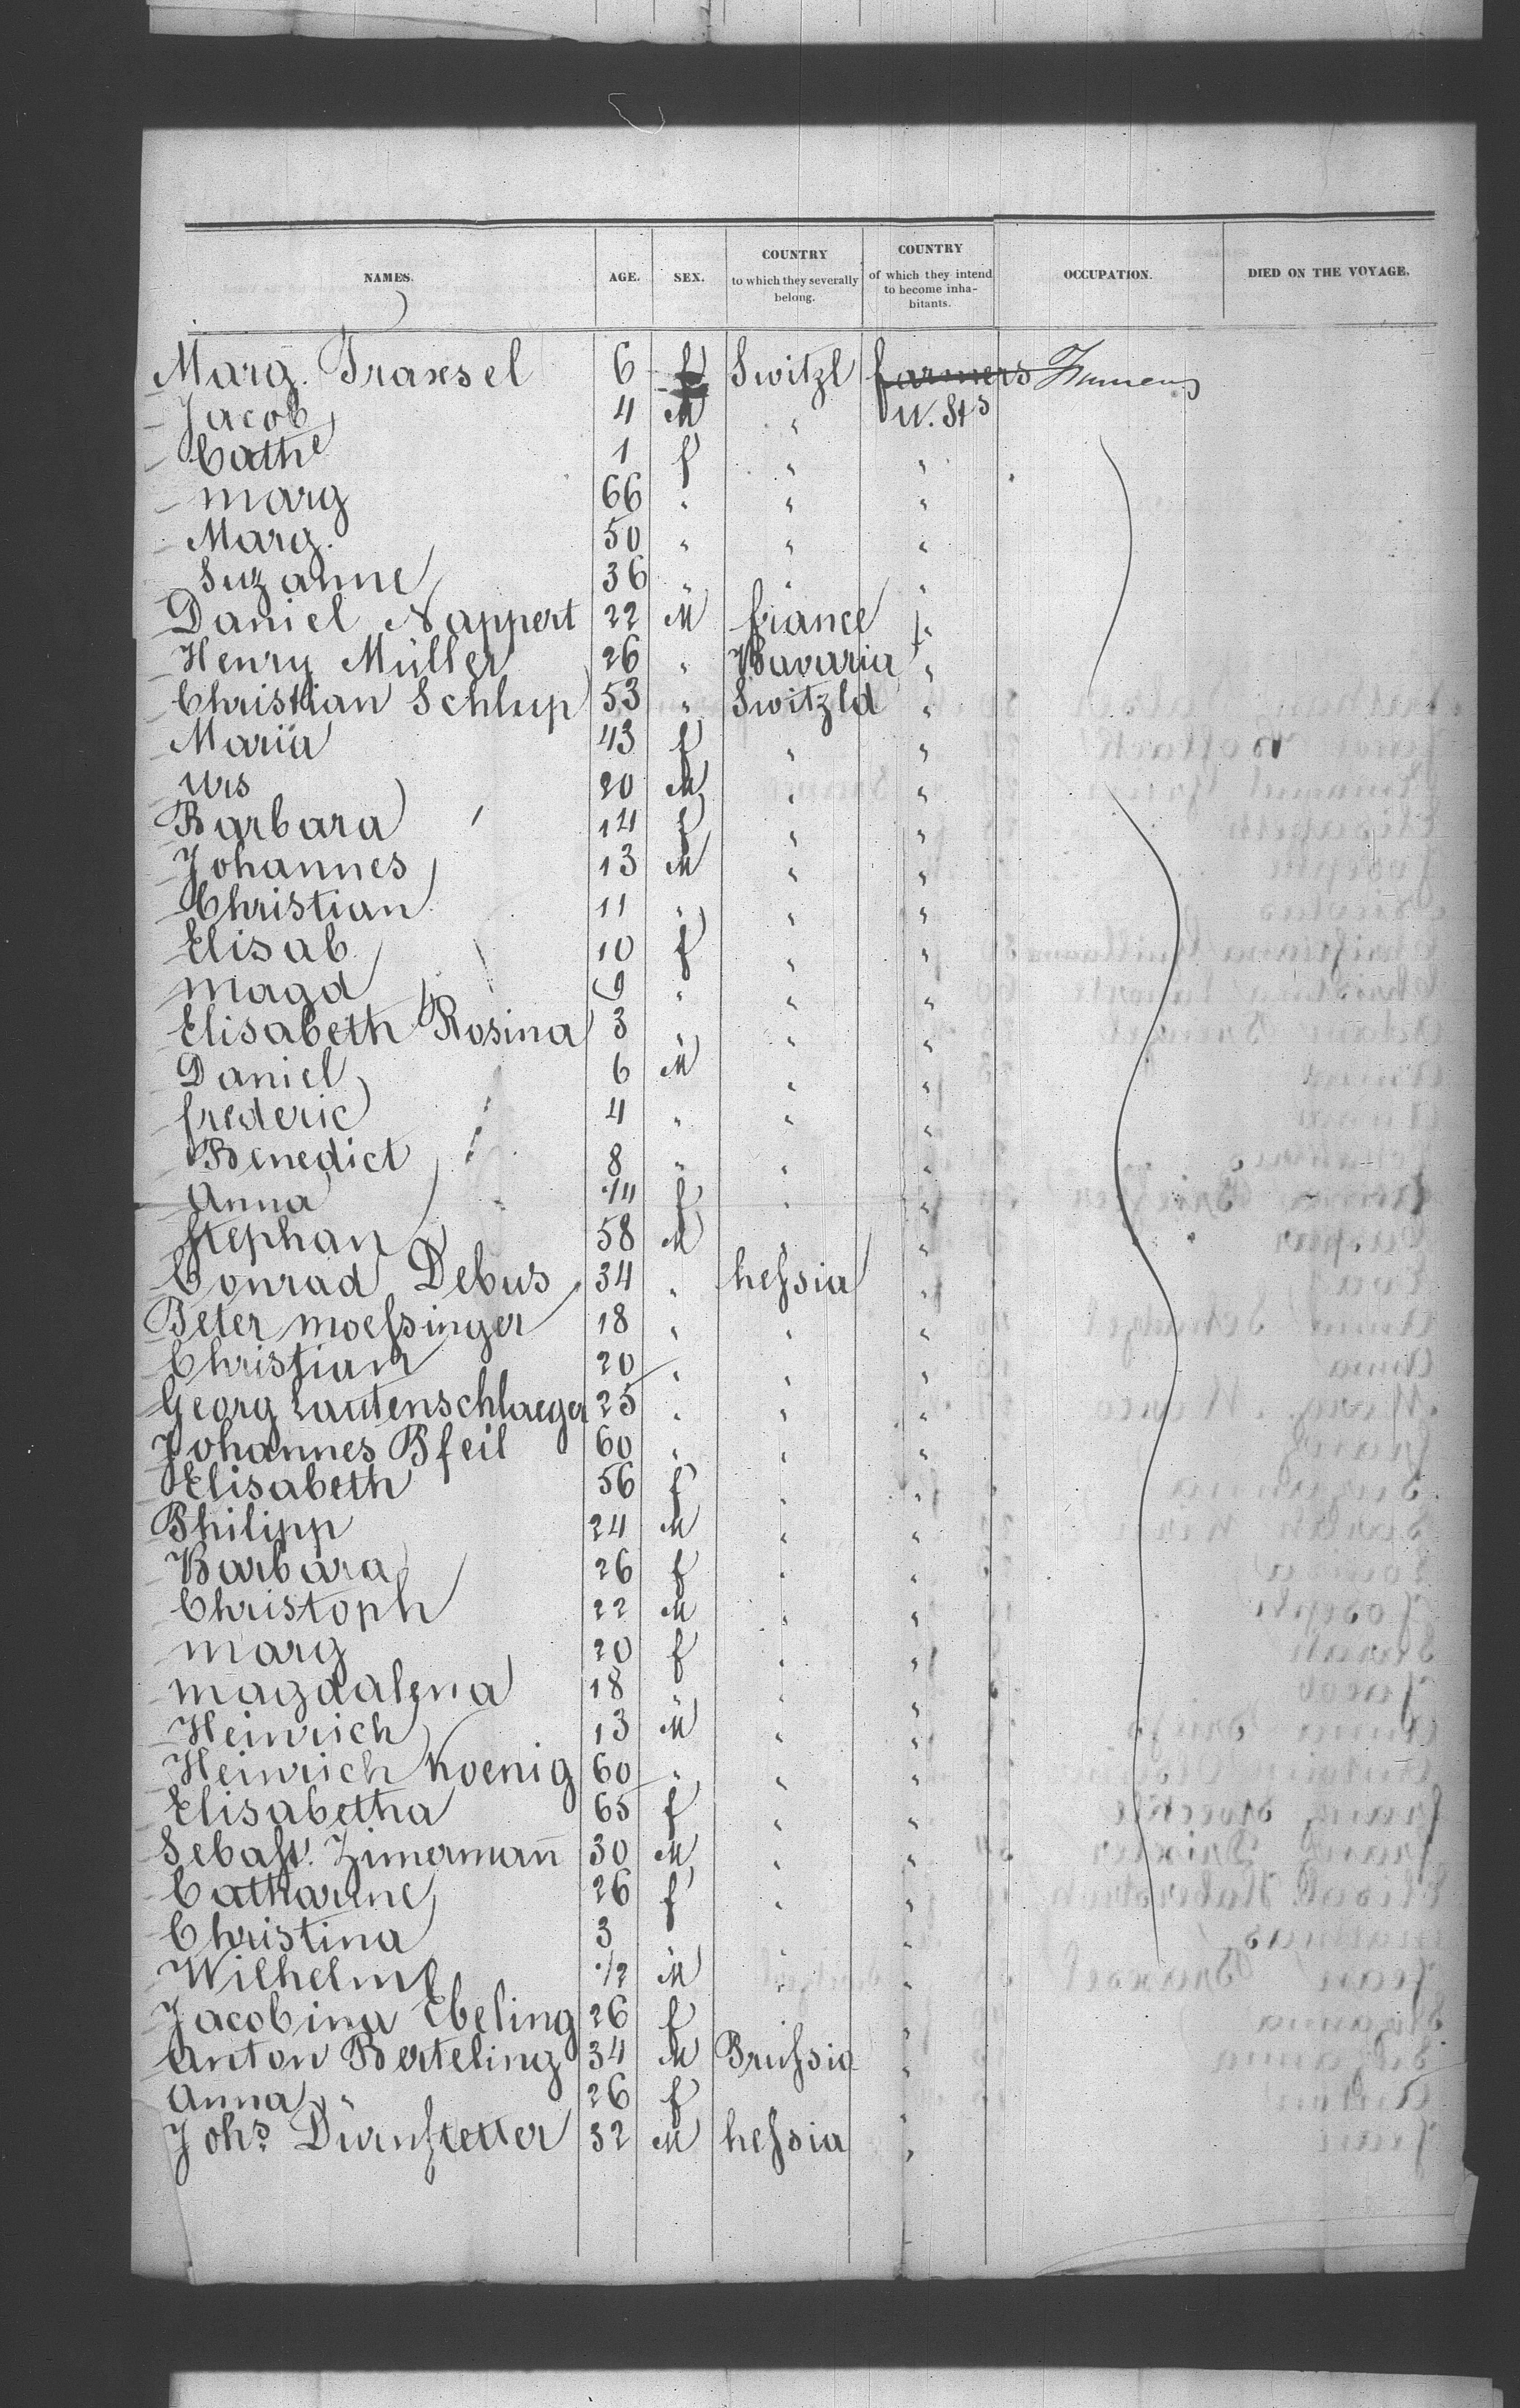 NAMES. AGE. SEX. COUNTRY to which they severally belong. COUNTRY of which they intend to become inha-bitants. OCCUPATION. DIED ON THE VOYAGE.
Marg. Traxsel 6 f Switzl farmers
Jacob 4 M " U. Sts
Cathe 1 f " "
marg 66 " " "
Marg. 50 " " "
Suzanne 36 " " "
Daniel Nappert 22 M france "
Henry Müller 26 " Bavaria "
Christian Schlup 53 " Switzld "
Maria 43 f " "
Urs 20 M " "
Barbara 14 f " "
Johannes 13 M " "
Christian 11 " " "
Elisab. 10 f " "
magd 9 " " "
Elisabeth Rosina 3 " " "
Daniel 6 M " "
frederic 4 " " "
Benedict 8 " " "
Anna f " "
Stephan 58 M " "
Conrad Debus 34 " hessia "
Peter moessinger 18 " " "
Christian 20 " " "
Georg Lautenschlaeger 25 " " "
Johannes Pfeil 60 " " "
Elisabeth 56 f " "
Philipp 24 M " "
Barbara 26 f " "
Christoph 22 M " "
marg 20 f " "
magdalena 18 " " "
Heinrich 13 M " "
Heinrich Koenig 60 " " "
Elisabetha 65 f " "
Sebast. Zimermann 30 M " "
Catharine 26 f " "
Christina 3 " "
Wilhelm 1/2 M " "
Jacobina Ebeling 26 f "
Anton Berteling 34 M Prussia "
Anna " 26 f "
Johs Dürnstetter 32 M hessia "